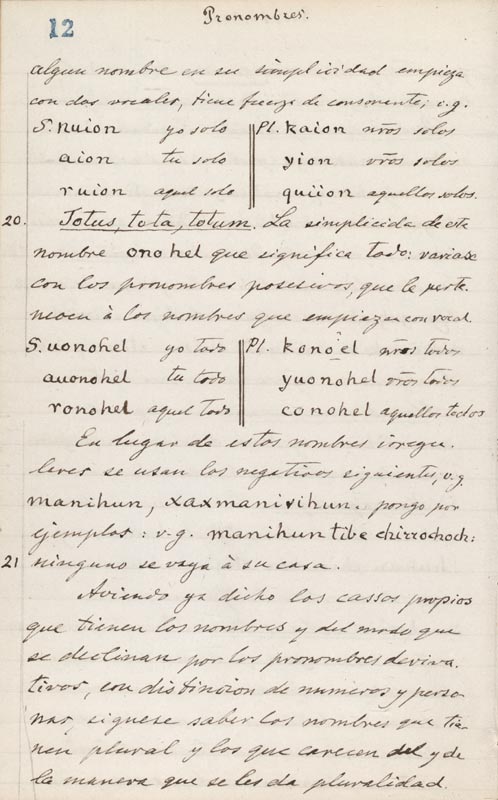 Pronombres.
12
algun nombre en su simplicidad empieza
con dos vocales, tiene fuerza de consonente; v.g.
S. nuion yo solo Pl. kaion nr̃os solos
aion tu solo yion vr̃os solos
ruion aquel solo quiion aquellos solos.
20. Totus, tota, totum. La simplicida de este
nombre onohel que significa todo: variase
con los pronombres posesivos, que le perte
necen à los nombres que empiezan con vocal.
S. uonohel yo todo Pl. konoel nr̃os todos
auonohel tu todo yuonohel vr̃os todos
ronohel aquel todo conohel aquellos todos
En lugar de estos nombres irregu-
lares se usan los negativos siguientes, v.g.
manihun, xaxmanivihun. pongo por
ejemplos: v.g. manihun tibe chirrochoch:
21 ninguno se vaya à su casa.
Aviendo ya dicho los cassos propios
que tienen los nombres y del modo que
se declinan por los pronombres deriva-
tivos, con distincion de numeros y perso-
nas, siguese saber los nombres que tie-
nen plural y los que carecen del y de
la manera que se les da pluralidad.